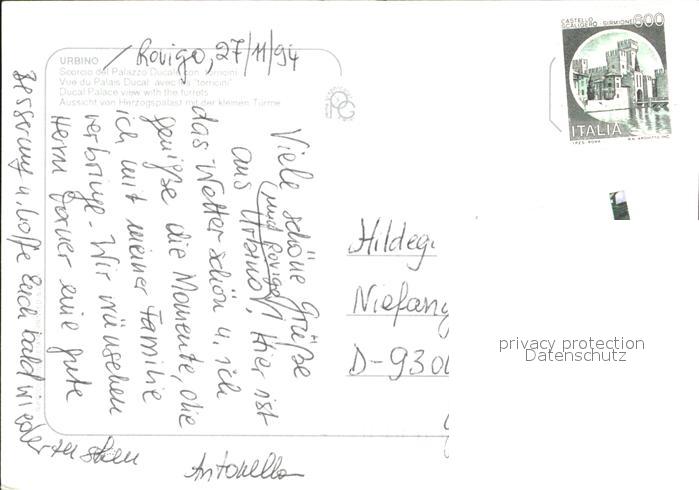 URBINO
Scorcio del Palazzo Ducale con "torricini"
Vue du Palais Ducal avec les "torricini"
Ducal Palace view with the turrets
Aussicht von Herzogspalast mit der kleinen Türme
Rovigo, 27/11/94
Viele schöne Grüße
(und Rovigo)
aus Urbino! Hier ist
das Wetter schön u. ich
genieße die Momente, die
ich mit meiner Familie
verbringe. Wir wünschen
Herrn eine gute
Besserung u. hoffe Euch bald wiederzusehen
Antonella
CASTELLO
SCALIGERO - SIRMIONE
600
ITALIA
I.P.Z.S. ROMA
Hildeg
Niefang
D-930
privacy protection
Datenschutz